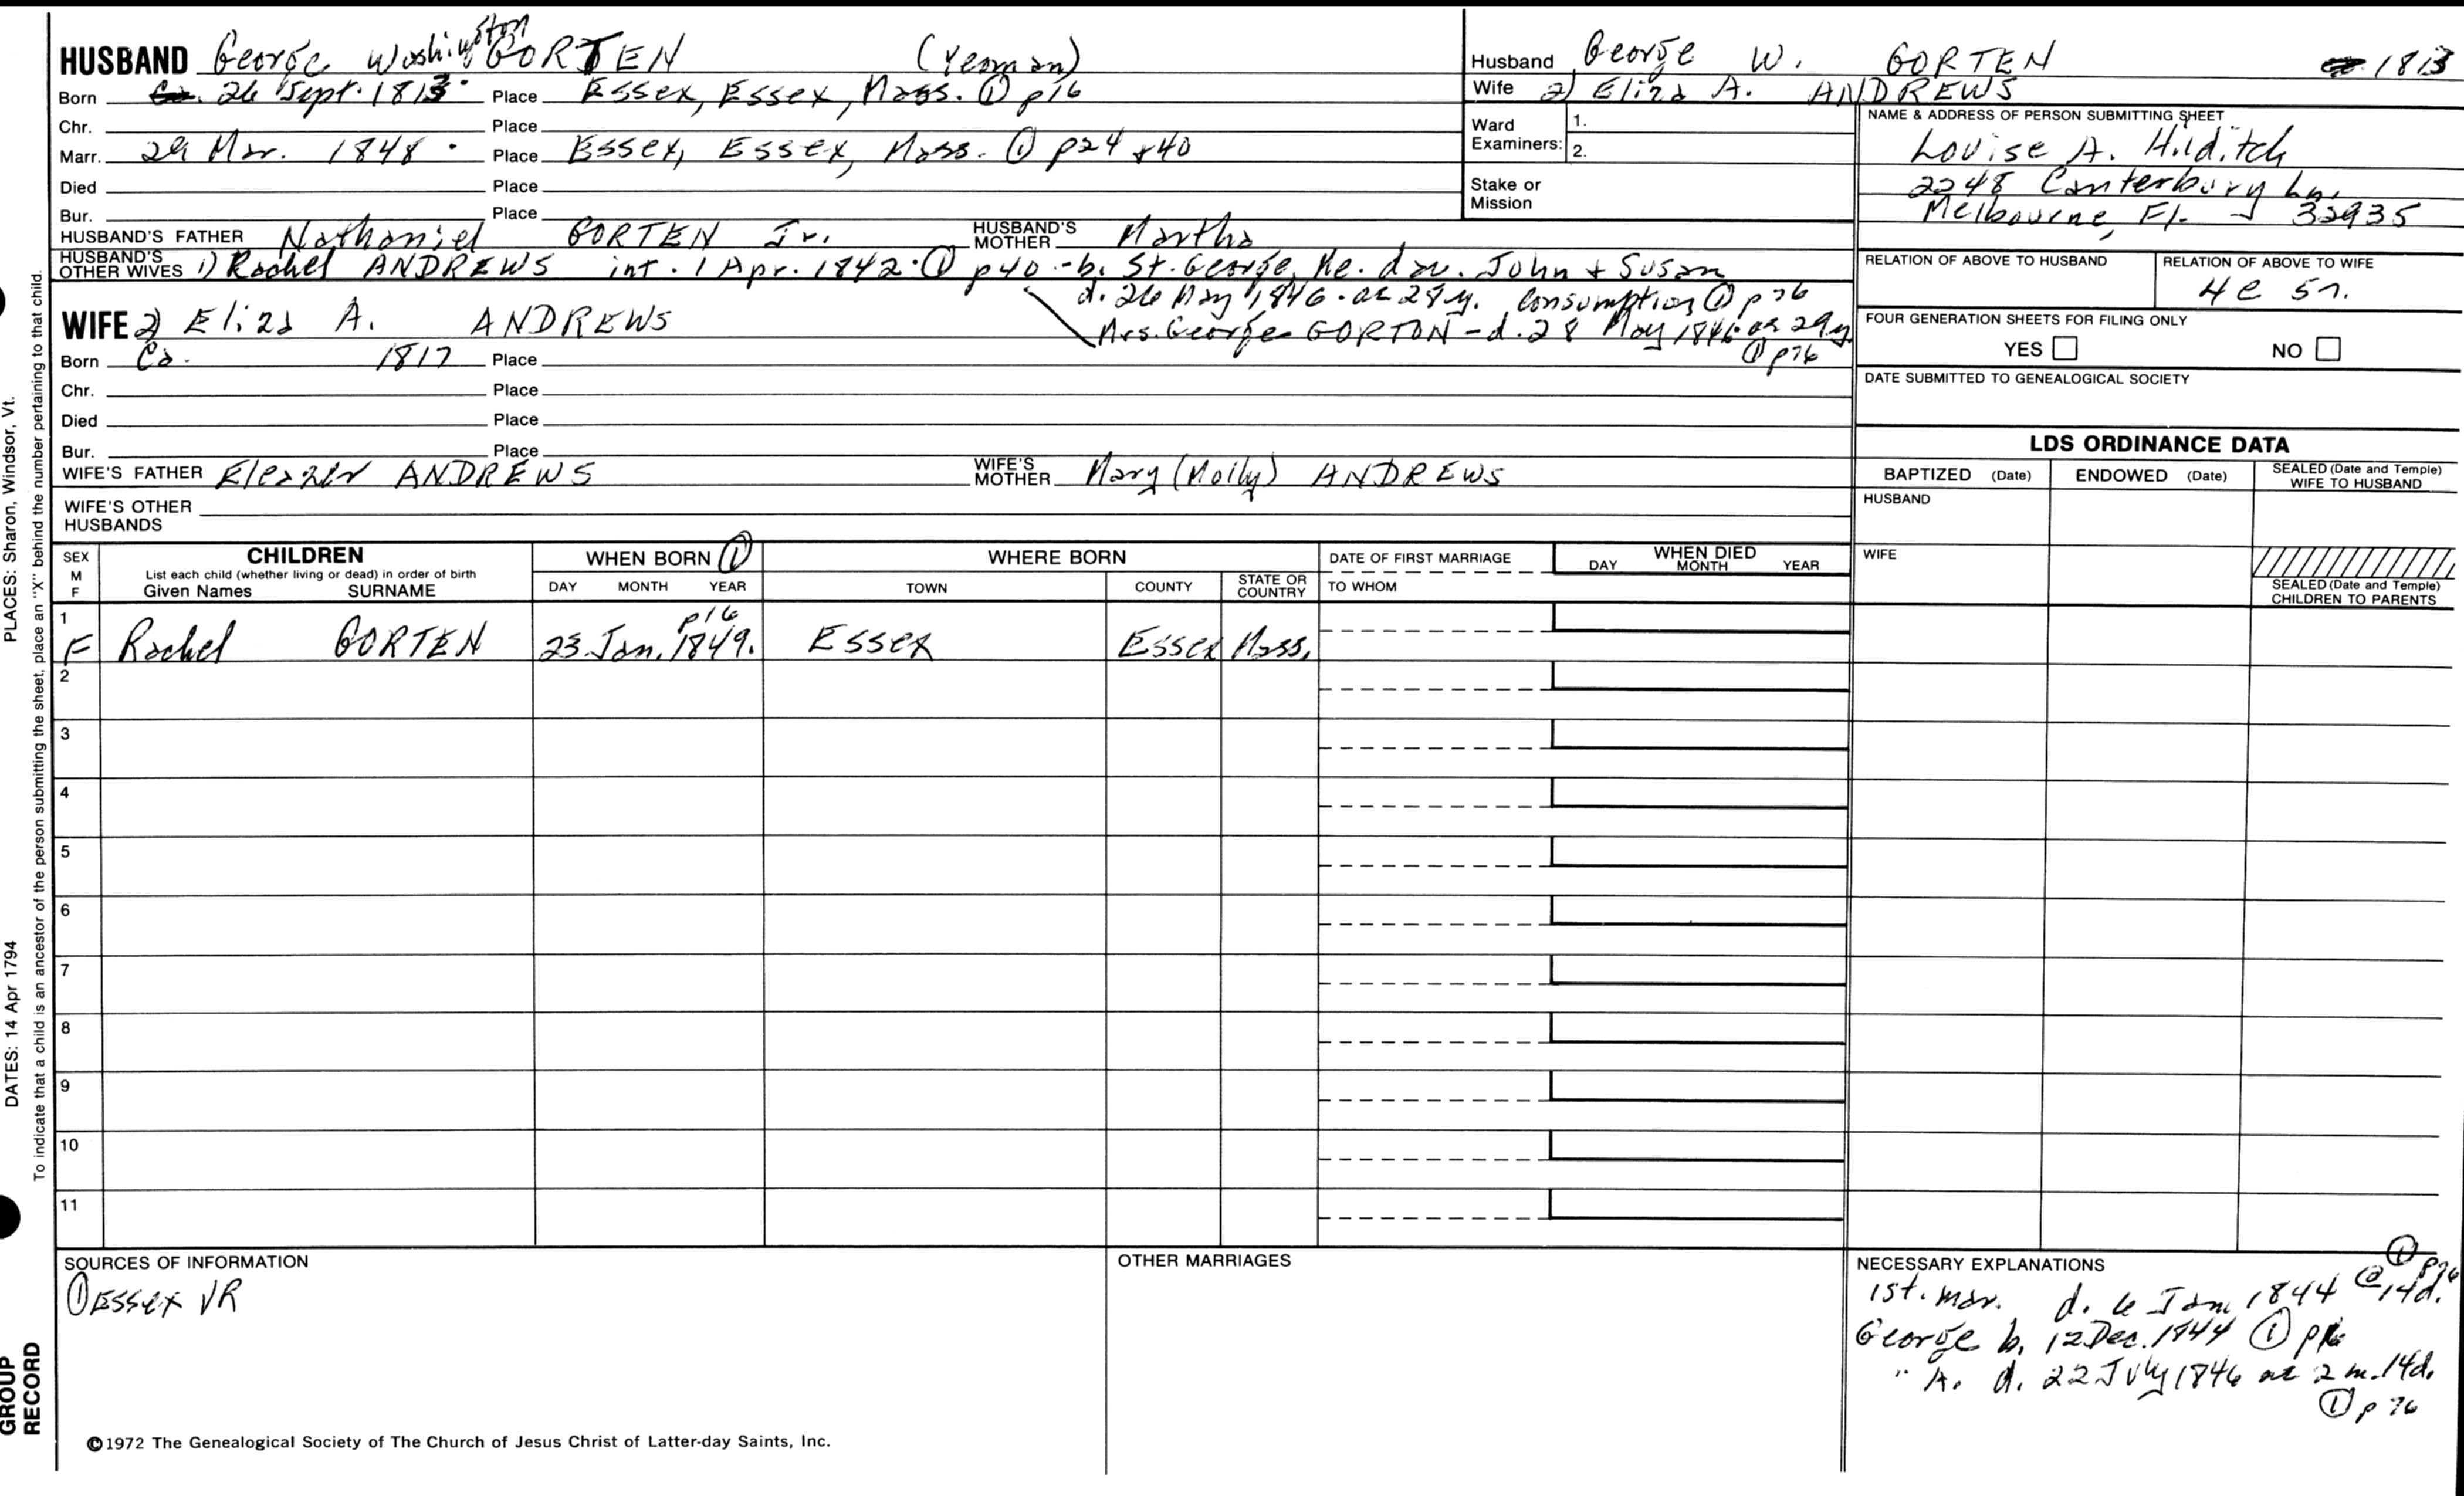 HUSBAND George Washington GORTEN (Yeoman)
Born Ca. 26 Sept. 1813. Place Essex, Essex, Mass. ① p16
Chr. Place
Marr. 29 Mar. 1848. Place Essex, Essex, Mass. ① p24 + 40
Died Place
Bur. Place
HUSBAND'S FATHER Nathaniel GORTEN Jr. HUSBAND'S MOTHER Martha
HUSBAND'S OTHER WIVES 1) Rachel ANDREWS int. 1 Apr. 1842. ① p40 - b. St. George, Me. dau. John + Susan
d. 26 May 1846. ae 28 y. Consumption ① p76
Mrs. George GORTON - d. 28 May 1846 ae 29 y
① p76
WIFE 2) Eliza A. ANDREWS
Born Ca. 1817 Place
Chr. Place
Died Place
Bur. Place
WIFE'S FATHER Eleazer ANDREWS WIFE'S MOTHER Mary (Molly) ANDREWS
WIFE'S OTHER HUSBANDS
Husband George W. GORTEN 1813
Wife 2) Eliza A. ANDREWS
Ward Examiners: 1.
2.
Stake or Mission
NAME & ADDRESS OF PERSON SUBMITTING SHEET
Louise A. Hilditch
2248 Canterbury Ln.
Melbourne, Fl. 32935
RELATION OF ABOVE TO HUSBAND RELATION OF ABOVE TO WIFE
4c 5r.
FOUR GENERATION SHEETS FOR FILING ONLY
YES NO
DATE SUBMITTED TO GENEALOGICAL SOCIETY
LDS ORDINANCE DATA
BAPTIZED (Date) ENDOWED (Date) SEALED (Date and Temple) WIFE TO HUSBAND
HUSBAND
WIFE
SEALED (Date and Temple) CHILDREN TO PARENTS
SEX M F CHILDREN WHEN BORN ① WHERE BORN DATE OF FIRST MARRIAGE WHEN DIED
List each child (whether living or dead) in order of birth
Given Names SURNAME DAY MONTH YEAR TOWN COUNTY STATE OR COUNTRY TO WHOM DAY MONTH YEAR
p16
1 F Rachel GORTEN 23 Jan. 1849. Essex Essex Mass.
2
3
4
5
6
7
8
9
10
11
SOURCES OF INFORMATION
① Essex VR
OTHER MARRIAGES
NECESSARY EXPLANATIONS
① p76
1st. mar. d. 6 Jan 1844 @ 14d.
George b. 12 Dec. 1844 ① p16
" A. d. 22 July 1846 ae 2 m. 14d.
① p 76
©1972 The Genealogical Society of The Church of Jesus Christ of Latter-day Saints, Inc.
PLACES: Sharon, Windsor, Vt.
DATES: 14 Apr 1794
To indicate that a child is an ancestor of the person submitting the sheet, place an "X" behind the number pertaining to that child.
GROUP
RECORD